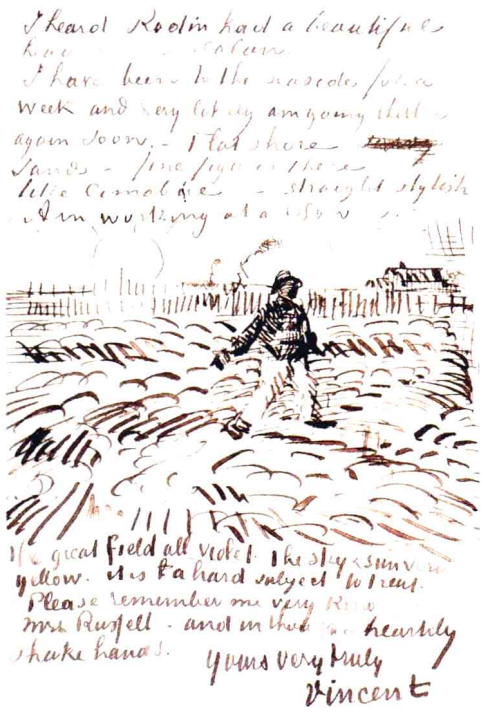 I heard Rodin had a beautiful
I have been to the seaside for a
week and very likely am going thither
again soon. - Flat shore
sands - fine figures there
like Cimabue - straight stylish
Am working at a Sower
the great field all violet the sky & sun very
yellow. it is a hard subject to treat.
Please remember me very kindly
mrs Russell - and in thought heartily
shake hands.
yours very truly
Vincent